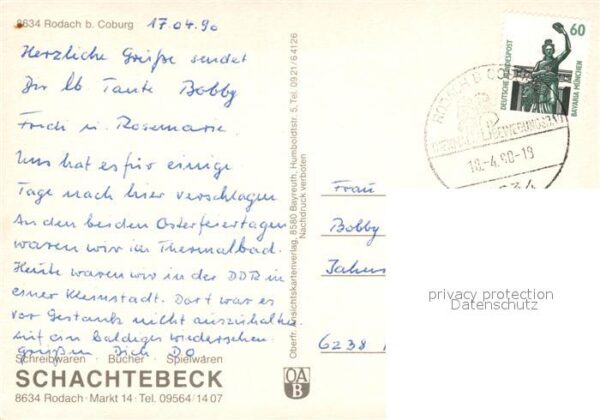 8634 Rodach b. Coburg 17.04.90
Herzliche Grüße sendet
Dir lb Tante Bobby
Frich u. Rosemarie.
Uns hat es für einige
Tage nach hier verschlagen
An den beiden Osterfeiertagen
waren wir im Thermalbad.
Heute waren wir in der DDR in
einer Kleinstadt. Dort war es
vor Gestank nicht auszuhalten.
Auf ein baldiges wiedersehen.
grüßen Dich DO
Schreibwaren · Bücher · Spielwaren
SCHACHTEBECK
8634 Rodach · Markt 14 · Tel. 09564/1407
OA
B
Oberfr. Ansichtskartenverlag, 8580 Bayreuth, Humboldtstr. 5, Tel. 0921/64126
Nachdruck verboten
60
DEUTSCHE BUNDESPOST
BAVARIA MÜNCHEN
RODACH B COBURG
18.-4.90-19
8634
Frau
Bobby
6238
privacy protection
Datenschutz